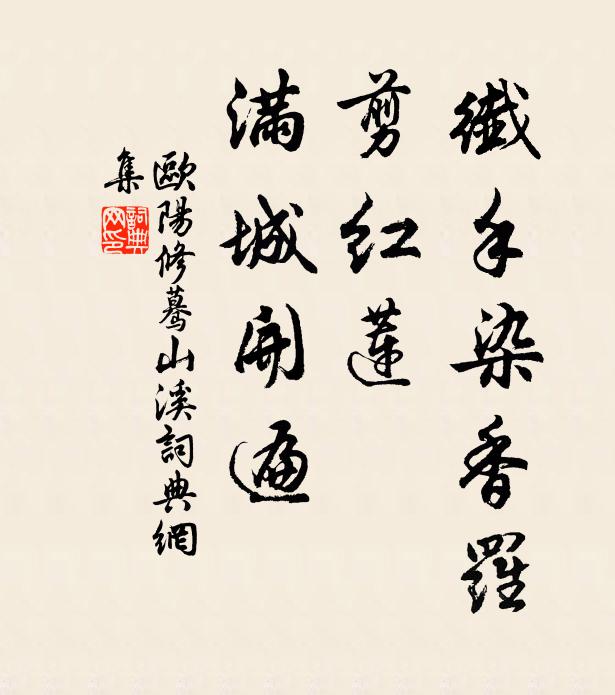 纖手染香羅
剪紅蓮
滿城開遍
歐陽修驀山溪詞典網
集
詞典網印